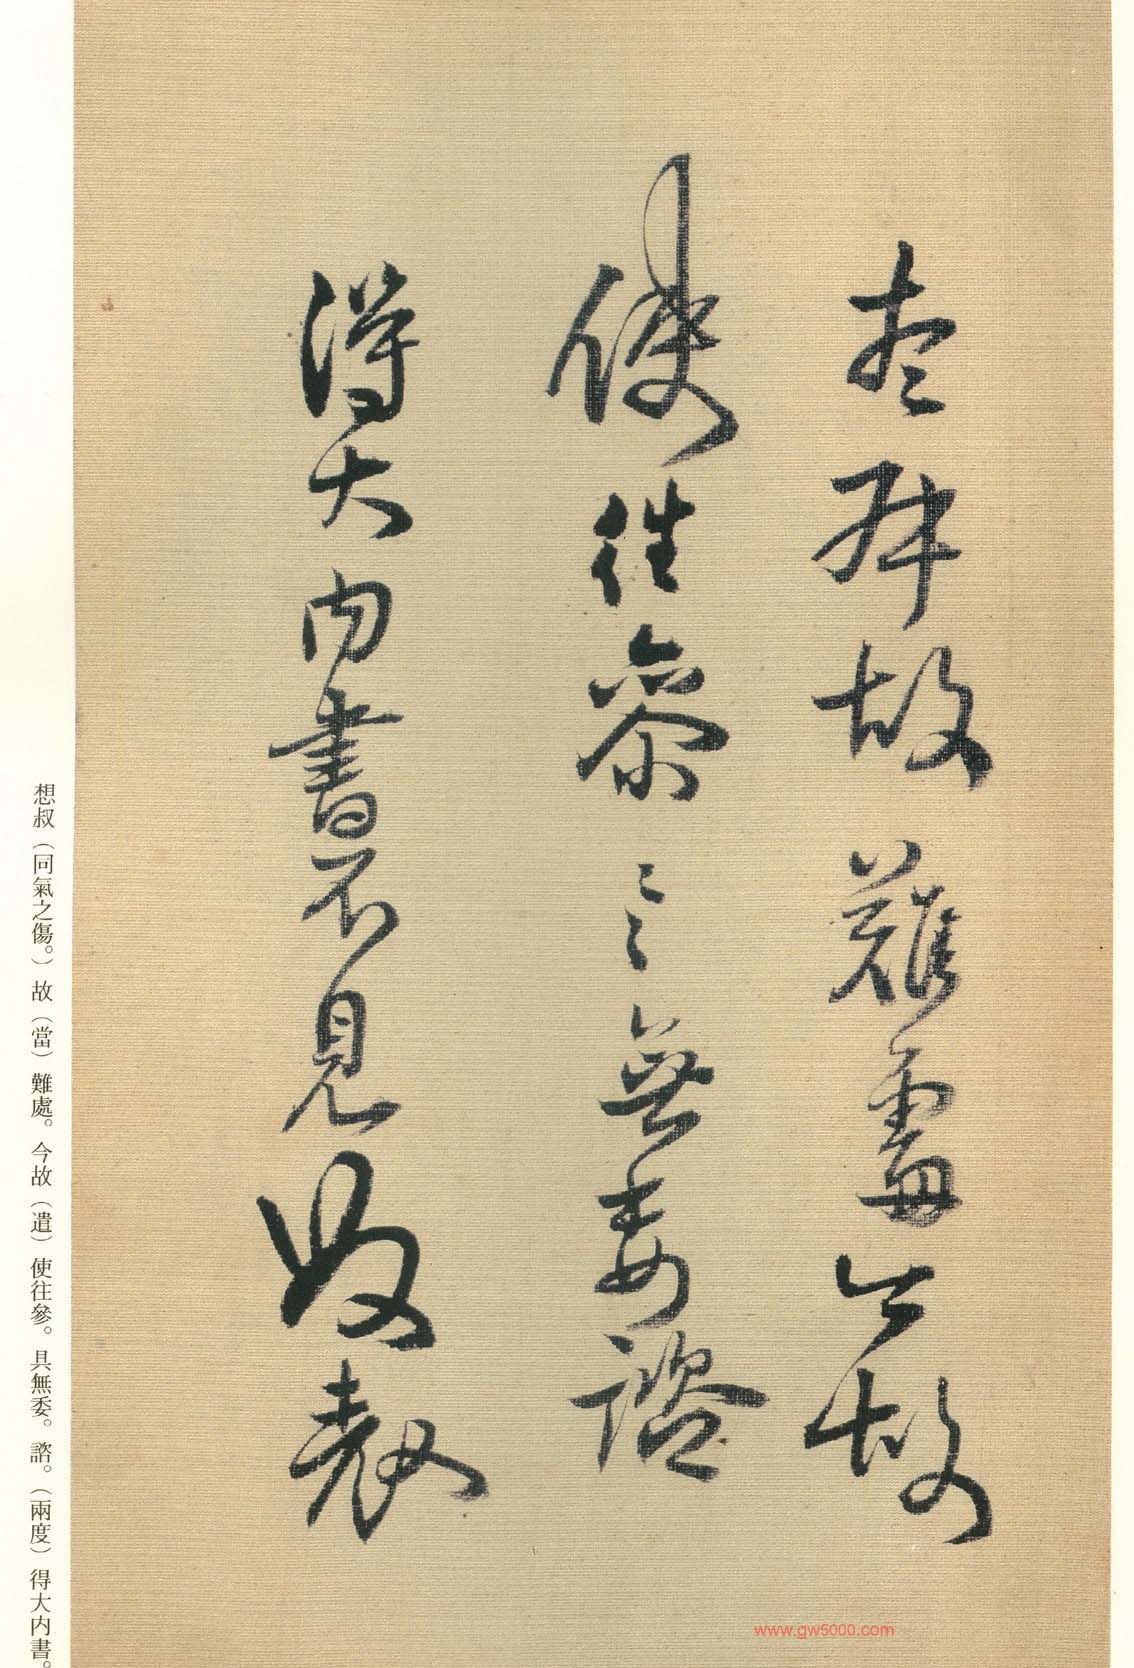 想叔故難處今故
使往參具無委諮
得大内書不見奴表
想叔（同氣之傷。）故（當）難處。今故（遣）使往參。具無委。諮。（兩度）得大内書。
www.gw5000.com